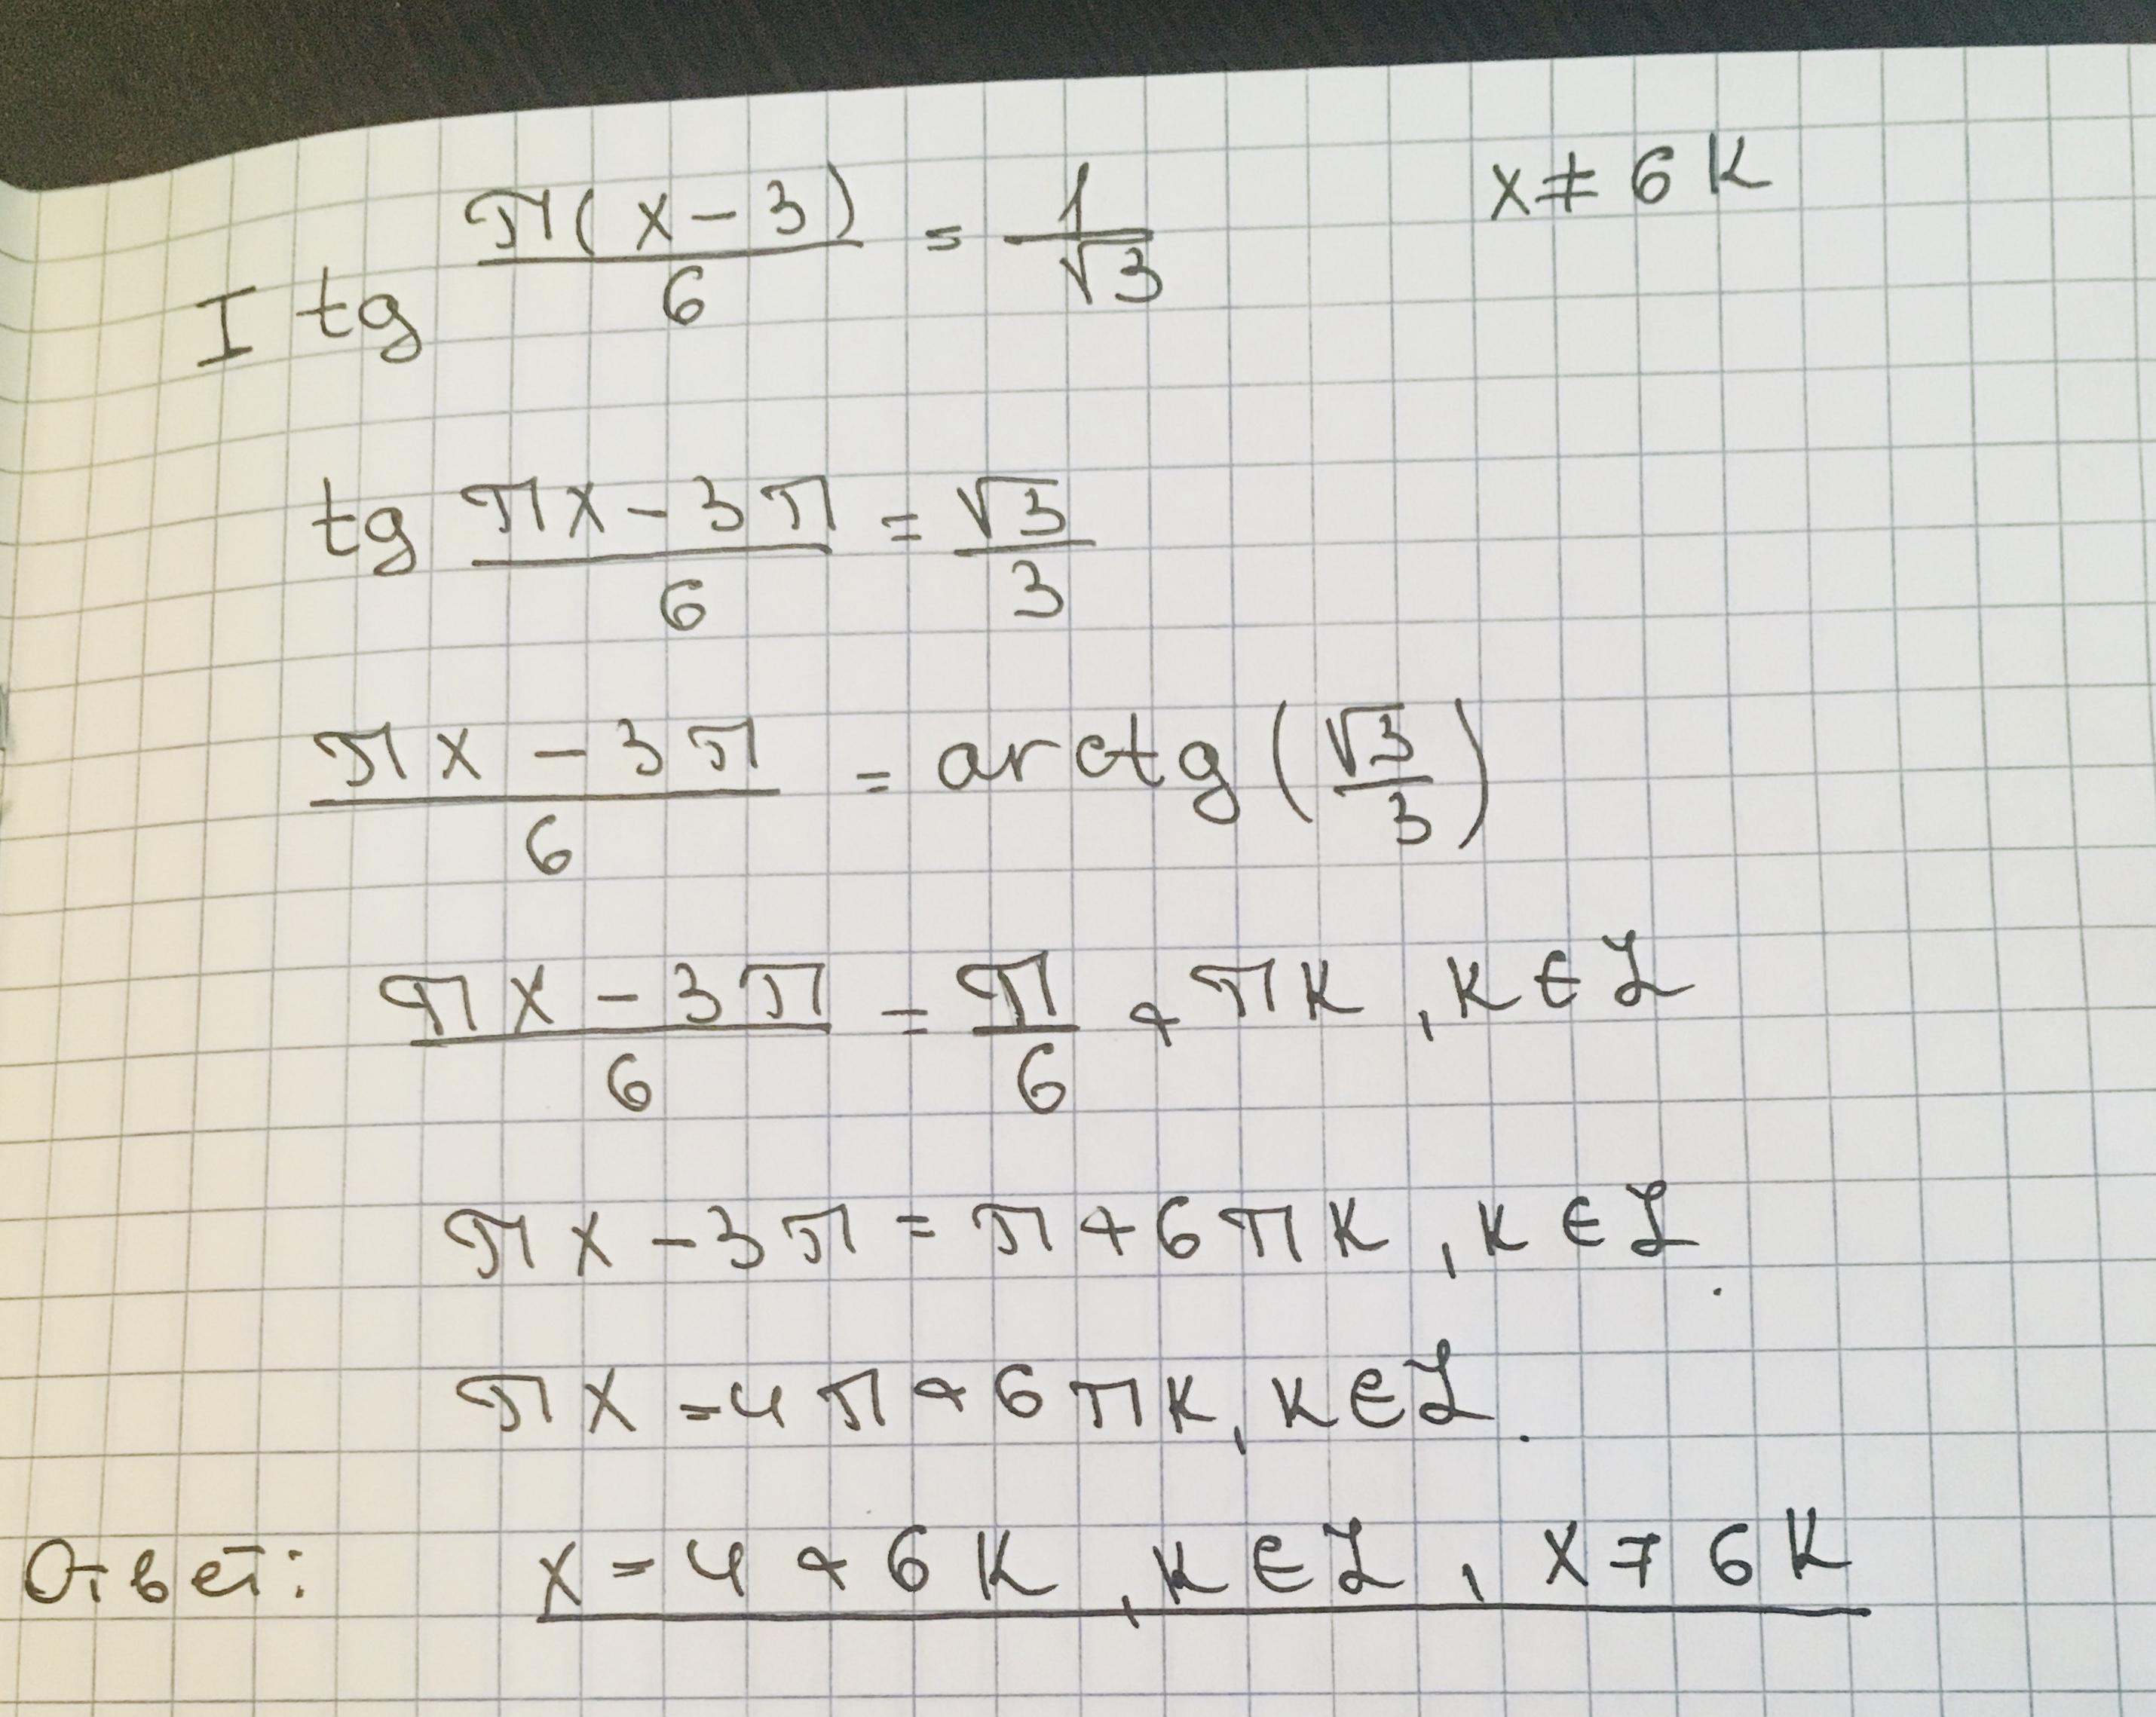 I tg π(x-3)/6 = 1/√3    x ≠ 6k
tg πx-3π/6 = √3/3
πx-3π/6 = arctg(√3/3)
πx-3π/6 = π/6 + πk, k ∈ Z
πx-3π = π+6πk, k ∈ Z.
πx = 4π+6πk, k ∈ Z.
Ответ: x = 4+6k, k ∈ Z, x ≠ 6k